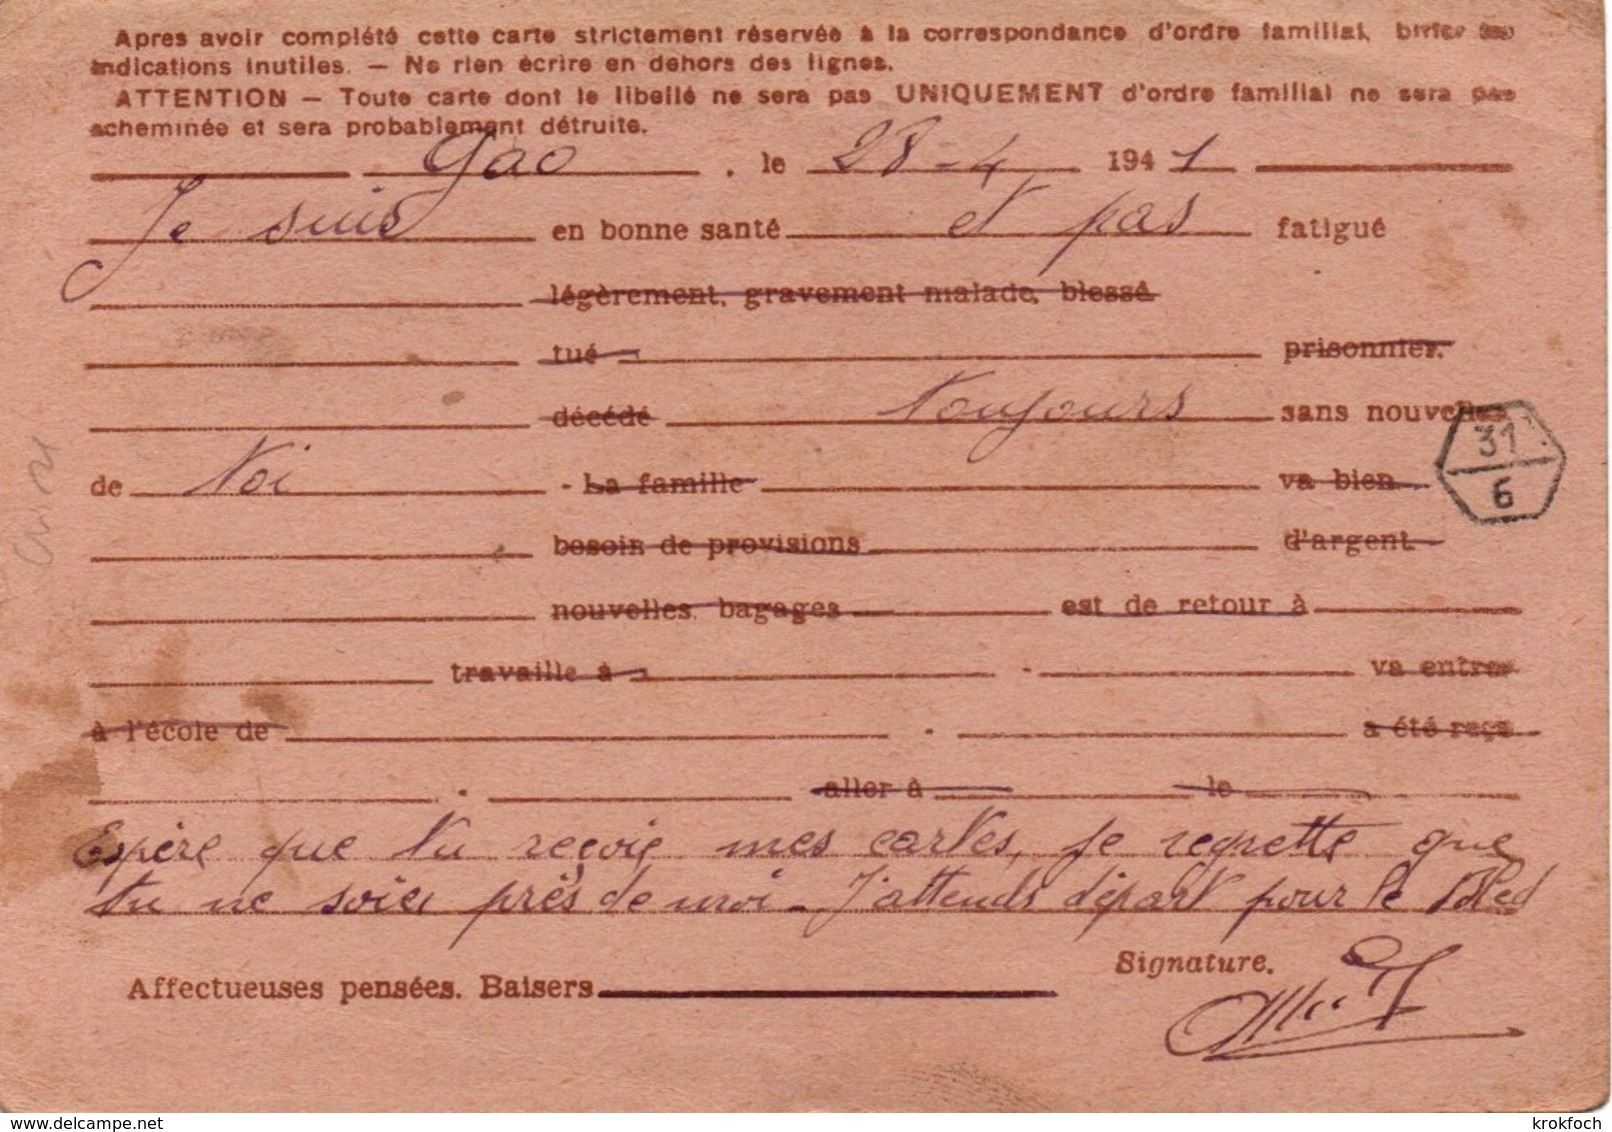 Apres avoir complété cette carte strictement réservée à la correspondance d'ordre familial, biffer les
indications inutiles. — Ne rien écrire en dehors des lignes.
ATTENTION — Toute carte dont le libellé ne sera pas UNIQUEMENT d'ordre familial ne sera pas
acheminée et sera probablement détruite.
Gao , le 28-4 1941
Je suis en bonne santé et pas fatigué
légèrement, gravement malade, blessé
tué prisonnier.
décédé Toujours sans nouvelles
de Toi - La famille va bien
31
6
besoin de provisions d'argent.
nouvelles bagages est de retour à
travaille à va entrer
à l'école de a été reçu
aller à le
Espère que tu reçois mes cartes, je regrette que
tu ne soies près de moi - J'attends départ pour le Bled
Signature.
Affectueuses pensées. Baisers
delcampe.net
krokfoch